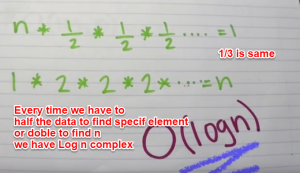 n * 1/2 * 1/2 * 1/2 .... = 1
1/3 is same
1 * 2 * 2 * 2 * ... = n
Every time we have to
half the data to find specif element
or doble to find n
we have Log n complex
O(logn)